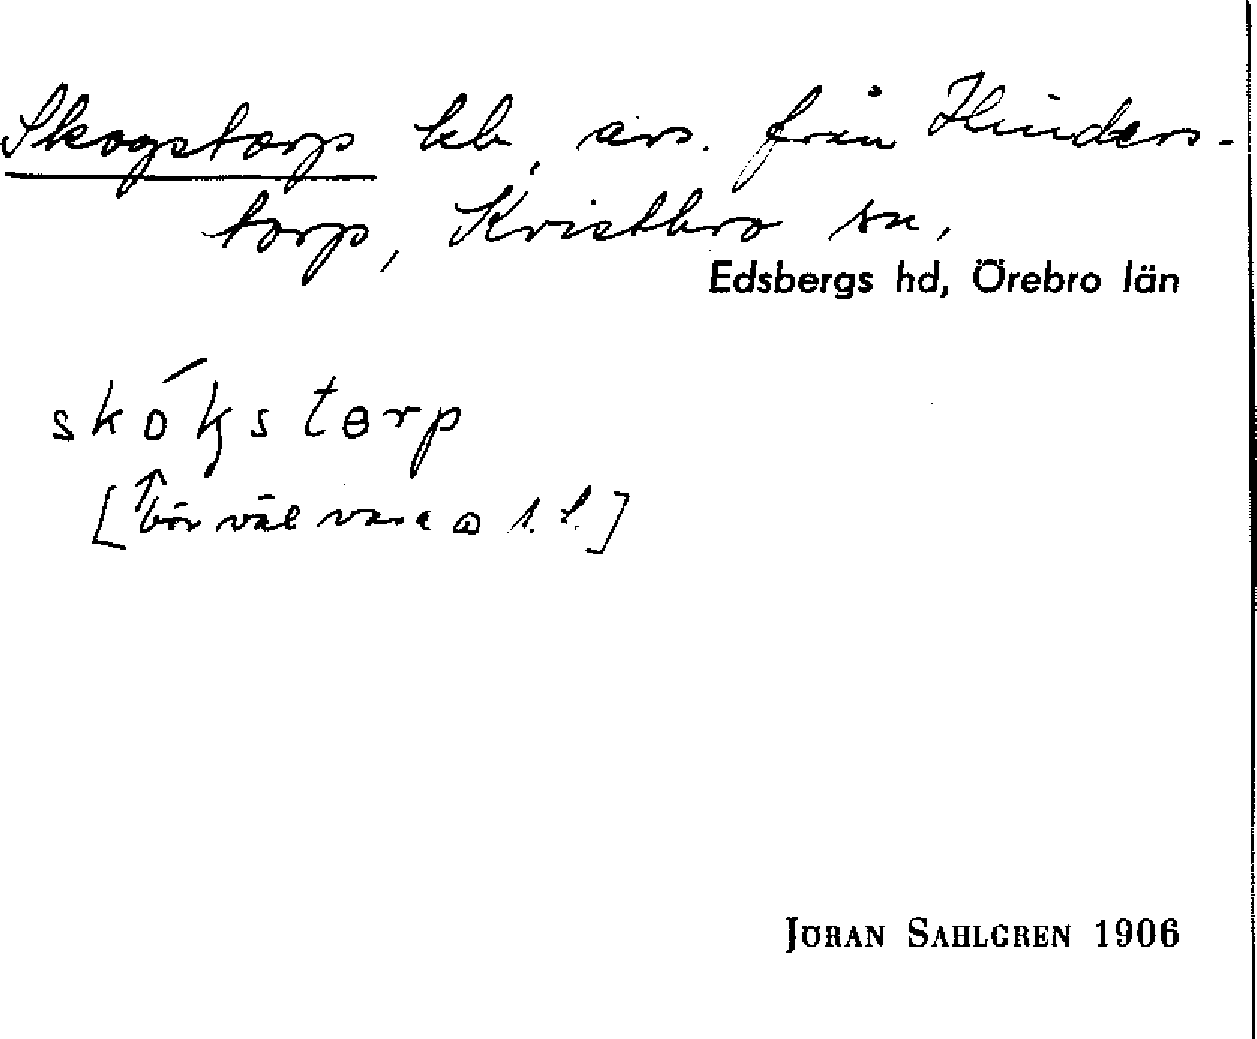 Skogstorp lb, avs. från Hinders-
torp, Kvistbro sn,
Edsbergs hd, Örebro län
skókstɵrp
[↑bör väl vara ɷ s. l.]
JÖRAN SAHLGREN 1906